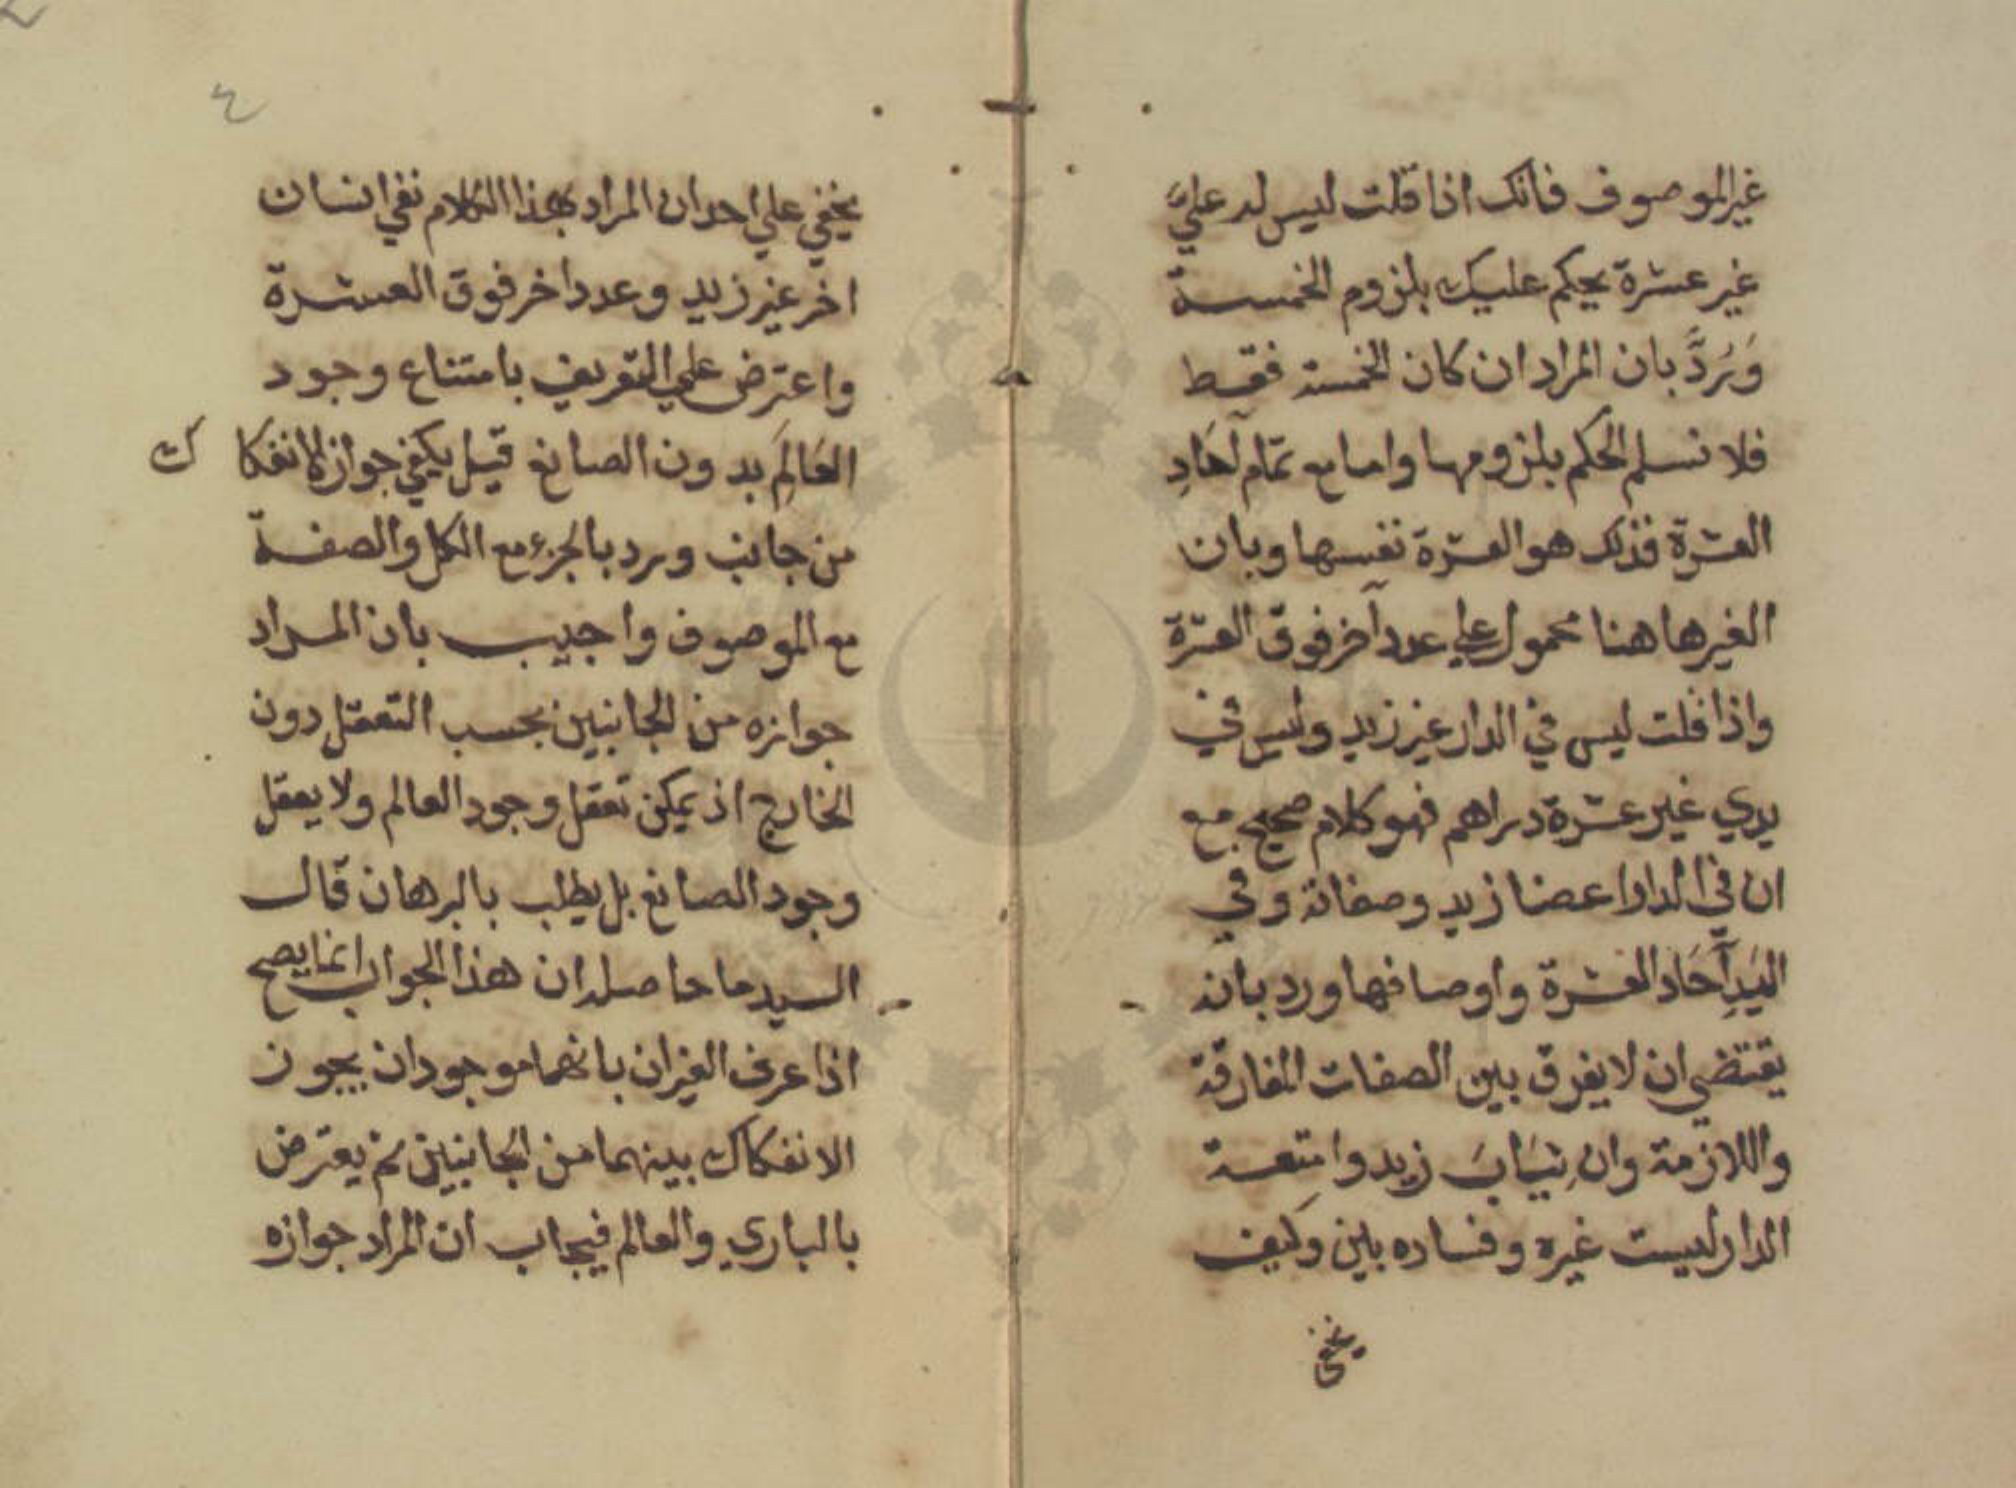 غير الموصوف فانك اذا قلت ليس له عليَّ
غير عشرة يحكم عليك بلزوم الخمسة
وَيُرَدُّ بان المراد ان كان الخمسة فقط
فلا نسلم الحكم بلزومها واما مع تمام آحَادِ
العشرة فذلك هو العشرة نفسها وبان
الغير هاهنا محمول علي عدد آخر فوق العشرة
واذا قلت ليس في الدار غير زيد وليس في
يدي غير عشرة دراهم فهو كلام صحيح مع
ان في الدار اعضا زيد وصفاته وفي
اليَدِ آحَاد العشرة واوصافها ورد بانه
يقتضي ان لا يفرق بين الصفات المفارقة
واللازمة وان ثِيَابَ زيد وامتعة
الدار ليست غيره وفساده بين وكيف
يخفي
٤
يخفي علي احد ان المراد بهذا الكلام نفي انسان
اخر غير زيد وعدد اخر فوق العشرة
واعترض علي التعريف بامتناع وجود
العَالَمِ بدون الصانع قيل يكفي جواز الانفكاك
من جانب ورد بالجزء مع الكل والصفة
مع الموصوف واجيب بان المراد
جوازه من الجانبين بحسب التعقل دون
الخارج اذ يمكن تعقل وجود العالم ولا يعقل
وجود الصانع بل يطلب بالبرهان قال
السيد ما حاصله ان هذا الجواب انما يصح
اذا عرف الغيران بانهما موجودان يجوز
الانفكاك بينهما من الجانبين ثم يعترض
بالباري والعالم فيجاب ان المراد جوازه